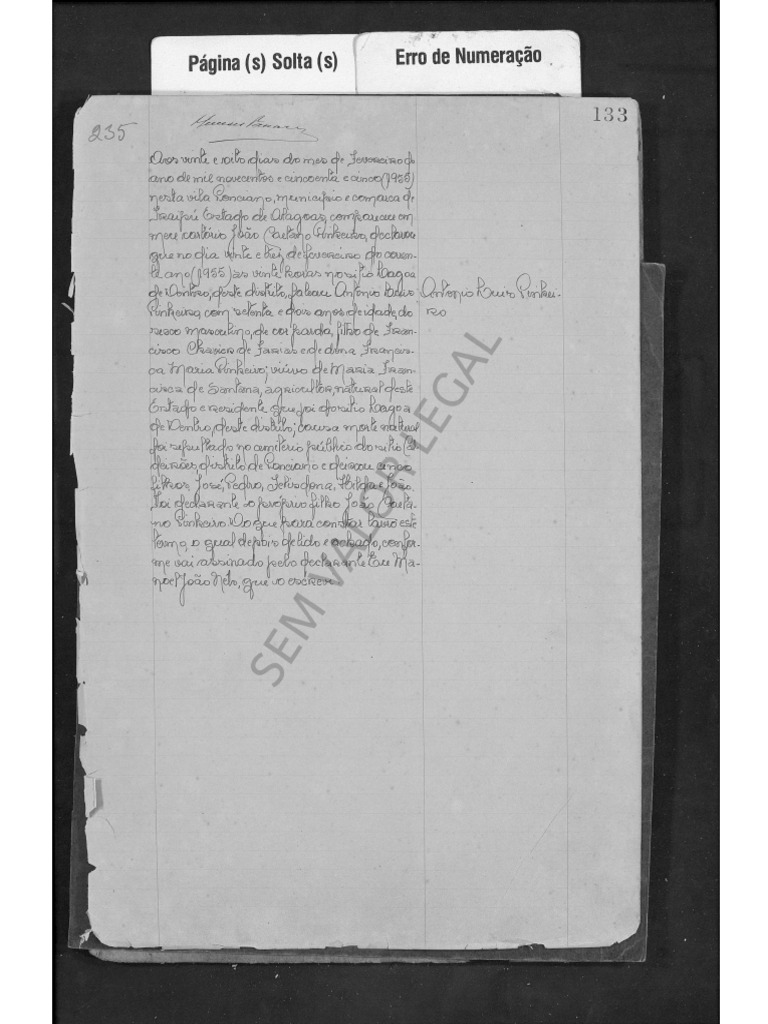 Página (s) Solta (s)
Erro de Numeração
133
235
Aos vinte e oito dias do mes de Fevereiro do
ano de mil novecentos e cincoenta e cinco (1955)
nesta vila Ponciano, municipio e comarca de
Traipú Estado de Alagoas, compareceu em
meu cartório João Caetano Pinheiro, declarou
que no dia vinte e de fevereiro do corren-
te ano (1955) as vinte horas no sitio Lagoa
de Dentro, deste distrito, faleceu Antonio Luis
Pinheiro, com setenta e dois anos de idade, do
sexo masculino, de cor parda, filho de Fran-
cisco de Farias e de dona Francis-
ca Maria Pinheiro; viúvo de Maria Fran-
cisca de Santana, agricultor, natural deste
Estado e residente que foi do sitio Lagoa
de Dentro, deste distrito; causa morte natural
foi sepultado no cemitério público do sitio
distrito de Ponciano e deixou cinco
filhos: José, Pedro, Hilda e João.
Foi declarante o próprio filho José Caeta-
no Pinheiro. Do que para constar lavro este
termo, o qual depois de lido e achado, confor-
me vai assinado pelo declarante Eu Ma-
noel João Neto, que o escrevi
Antonio Luis Pinhei-
ro
SEM VALOR LEGAL